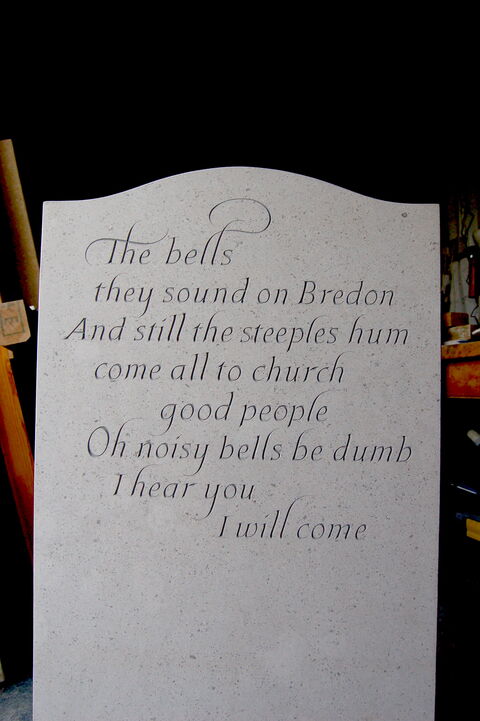 The bells
they sound on Bredon
And still the steeples hum
come all to church
good people
Oh noisy bells be dumb
I hear you
I will come